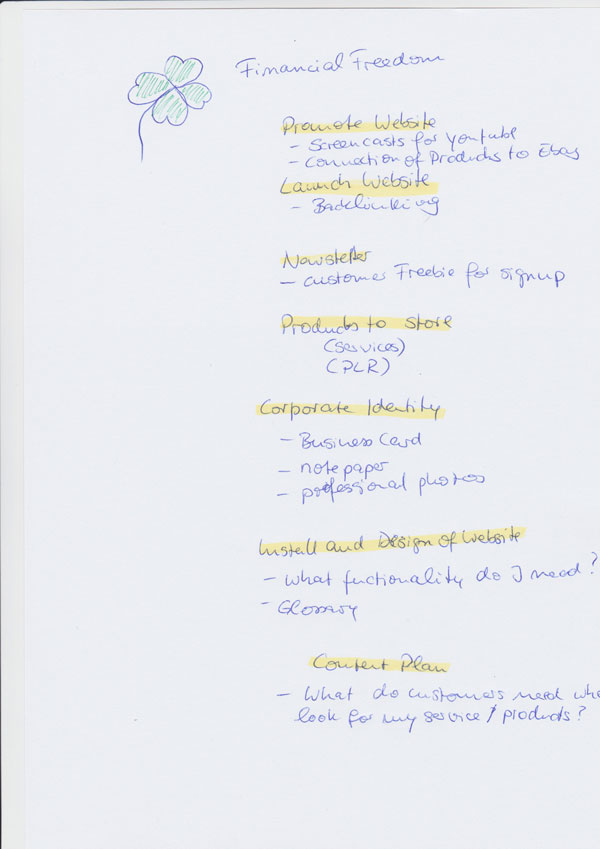 Financial Freedom
Promote Website
- Screencasts for youtube
- Connection of Products to Ebay
Launch Website
- Backlinking
Newsletter
- customer Freebie for signup
Products to store
(Services)
(PLR)
Corporate Identity
- Business Card
- notepaper
- professional photos
Install and Design of Website
- What fuctionality do I need?
- Glossary
Content Plan
- What do customers need
look for my service / products?